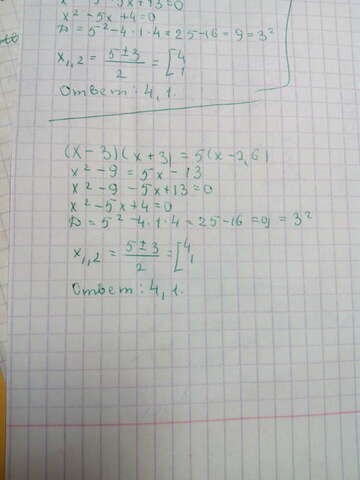 x² - 5x + 4 = 0
D = 5² - 4 · 1 · 4 = 25 - 16 = 9 = 3²
x₁,₂ = (5 ± 3)/2 = [4, 1
Ответ: 4, 1.
(x - 3)(x + 3) = 5(x - 2,6)
x² - 9 = 5x - 13
x² - 9 - 5x + 13 = 0
x² - 5x + 4 = 0
D = 5² - 4 · 1 · 4 = 25 - 16 = 9 = 3²
x₁,₂ = (5 ± 3)/2 = [4, 1
Ответ: 4, 1.